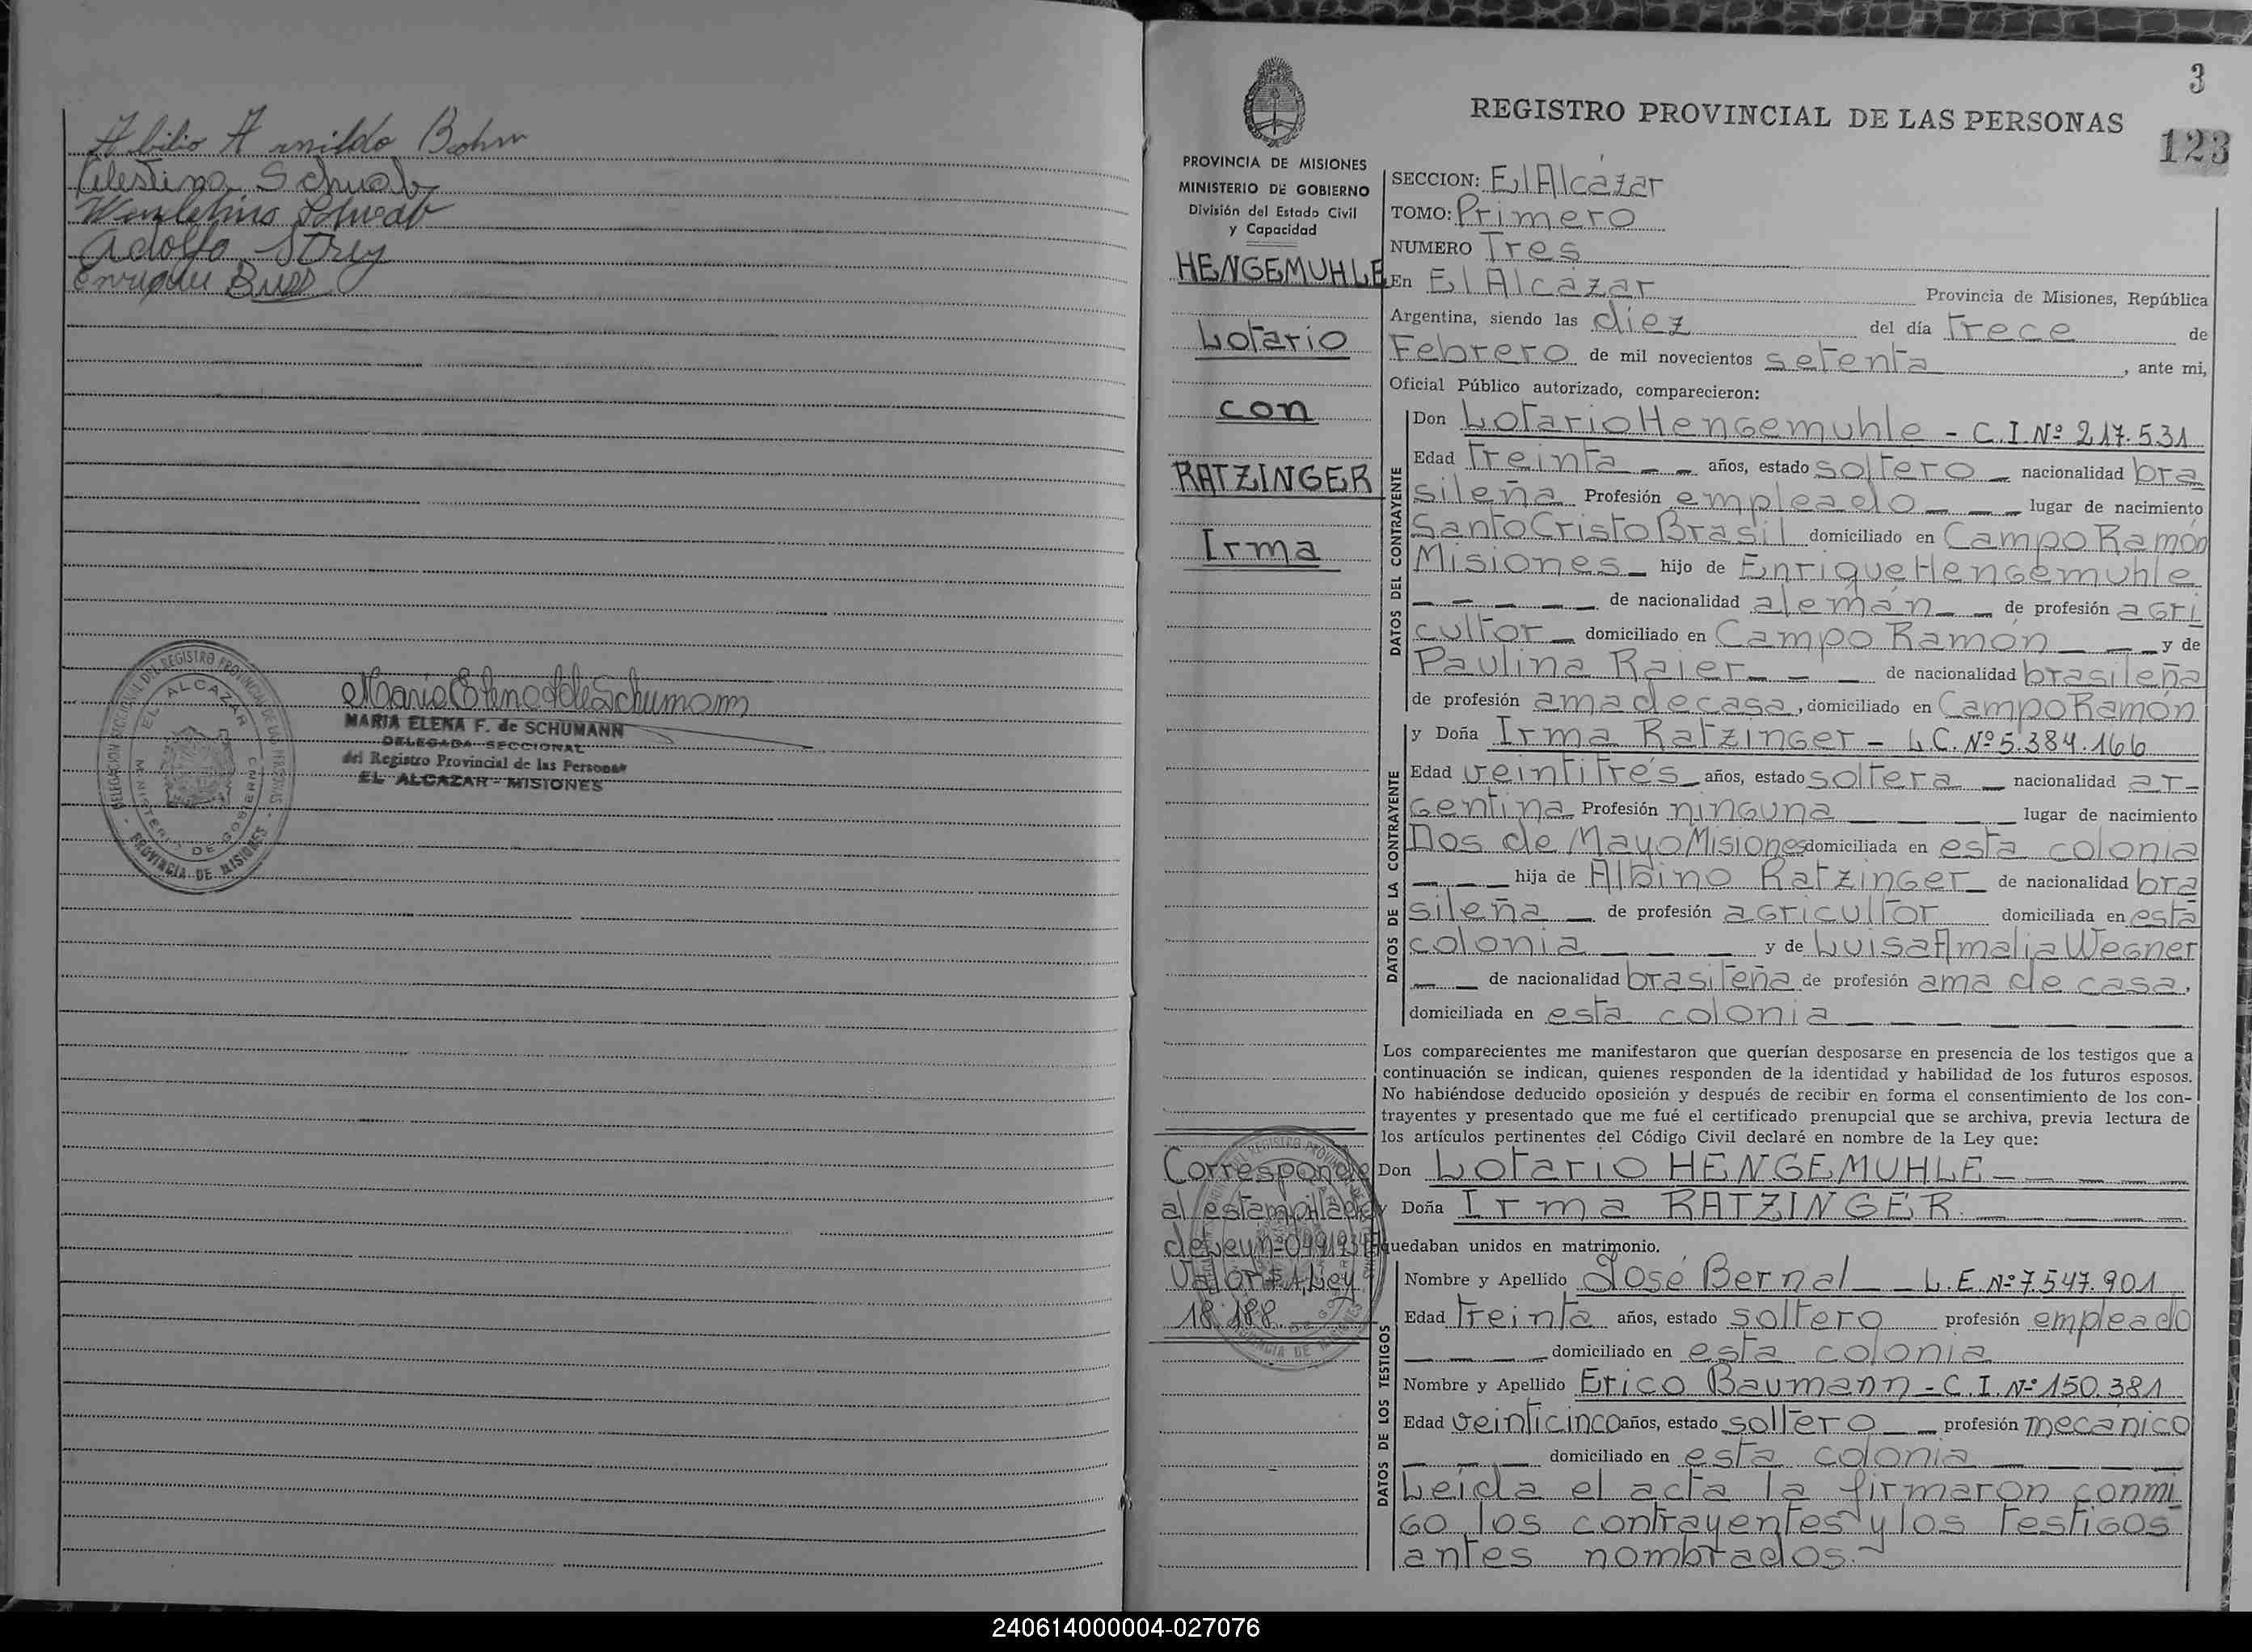 Abilio Arnildo Bohn
Celestina Schwab
Wendelino Schwab
Adolfo Strey
Enrique Buss
MARIA ELENA F. de SCHUMANN
DELEGADA SECCIONAL
del Registro Provincial de las Personas
EL ALCAZAR - MISIONES
EL ALCAZAR
PROVINCIA DE MISIONES
3
REGISTRO PROVINCIAL DE LAS PERSONAS
123
PROVINCIA DE MISIONES
MINISTERIO DE GOBIERNO
División del Estado Civil
y Capacidad
HENGEMUHLE
Lotario
con
RATZINGER
Irma
SECCION: El Alcázar
TOMO: Primero
NUMERO Tres
En El Alcázar Provincia de Misiones, República
Argentina, siendo las diez del día trece de
Febrero de mil novecientos setenta, ante mi,
Oficial Público autorizado, comparecieron:
DATOS DEL CONTRAYENTE
Don Lotario Hengemuhle - C.I. Nº 217.531
Edad treinta - - años, estado soltero - nacionalidad bra
sileña Profesión empleado - - - lugar de nacimiento
Santo Cristo Brasil domiciliado en Campo Ramón
Misiones - hijo de Enrique Hengemuhle
- - - - - de nacionalidad alemán - - de profesión agri
cultor - domiciliado en Campo Ramón - - - y de
Paulina Raier - - - de nacionalidad brasileña
de profesión ama de casa, domiciliado en Campo Ramón
DATOS DE LA CONTRAYENTE
y Doña Irma Ratzinger - L.C. Nº 5.384.166
Edad veintitrés - años, estado soltera - nacionalidad ar-
gentina Profesión ninguna - - - lugar de nacimiento
Dos de Mayo Misiones domiciliada en esta colonia
- - - hija de Albino Ratzinger - de nacionalidad bra
sileña - de profesión agricultor domiciliada en esta
colonia - - - y de Luisa Amalia Wegner
- - de nacionalidad brasileña de profesión ama de casa,
domiciliada en esta colonia - - - - - - -
Los comparecientes me manifestaron que querían desposarse en presencia de los testigos que a
continuación se indican, quienes responden de la identidad y habilidad de los futuros esposos.
No habiéndose deducido oposición y después de recibir en forma el consentimiento de los con-
trayentes y presentado que me fué el certificado prenupcial que se archiva, previa lectura de
los artículos pertinentes del Código Civil declaré en nombre de la Ley que:
Don Lotario HENGEMUHLE - - - - -
y Doña Irma RATZINGER. - - - - -
quedaban unidos en matrimonio.
Corresponde
al estampillado
de Ley nº
Valor $ 1, Ley
18.188.
DATOS DE LOS TESTIGOS
Nombre y Apellido José Bernal - - L.E. Nº 7.547.901
Edad treinta años, estado soltero profesión empleado
- - - - domiciliado en esta colonia
Nombre y Apellido Erico Baumann - C.I. Nº 150.381
Edad veinticinco años, estado soltero - - profesión mecánico
- - - domiciliado en esta colonia - - - -
Leída el acta la firmaron conmi
go los contrayentes y los testigos
antes nombrados.-
240614000004-027076